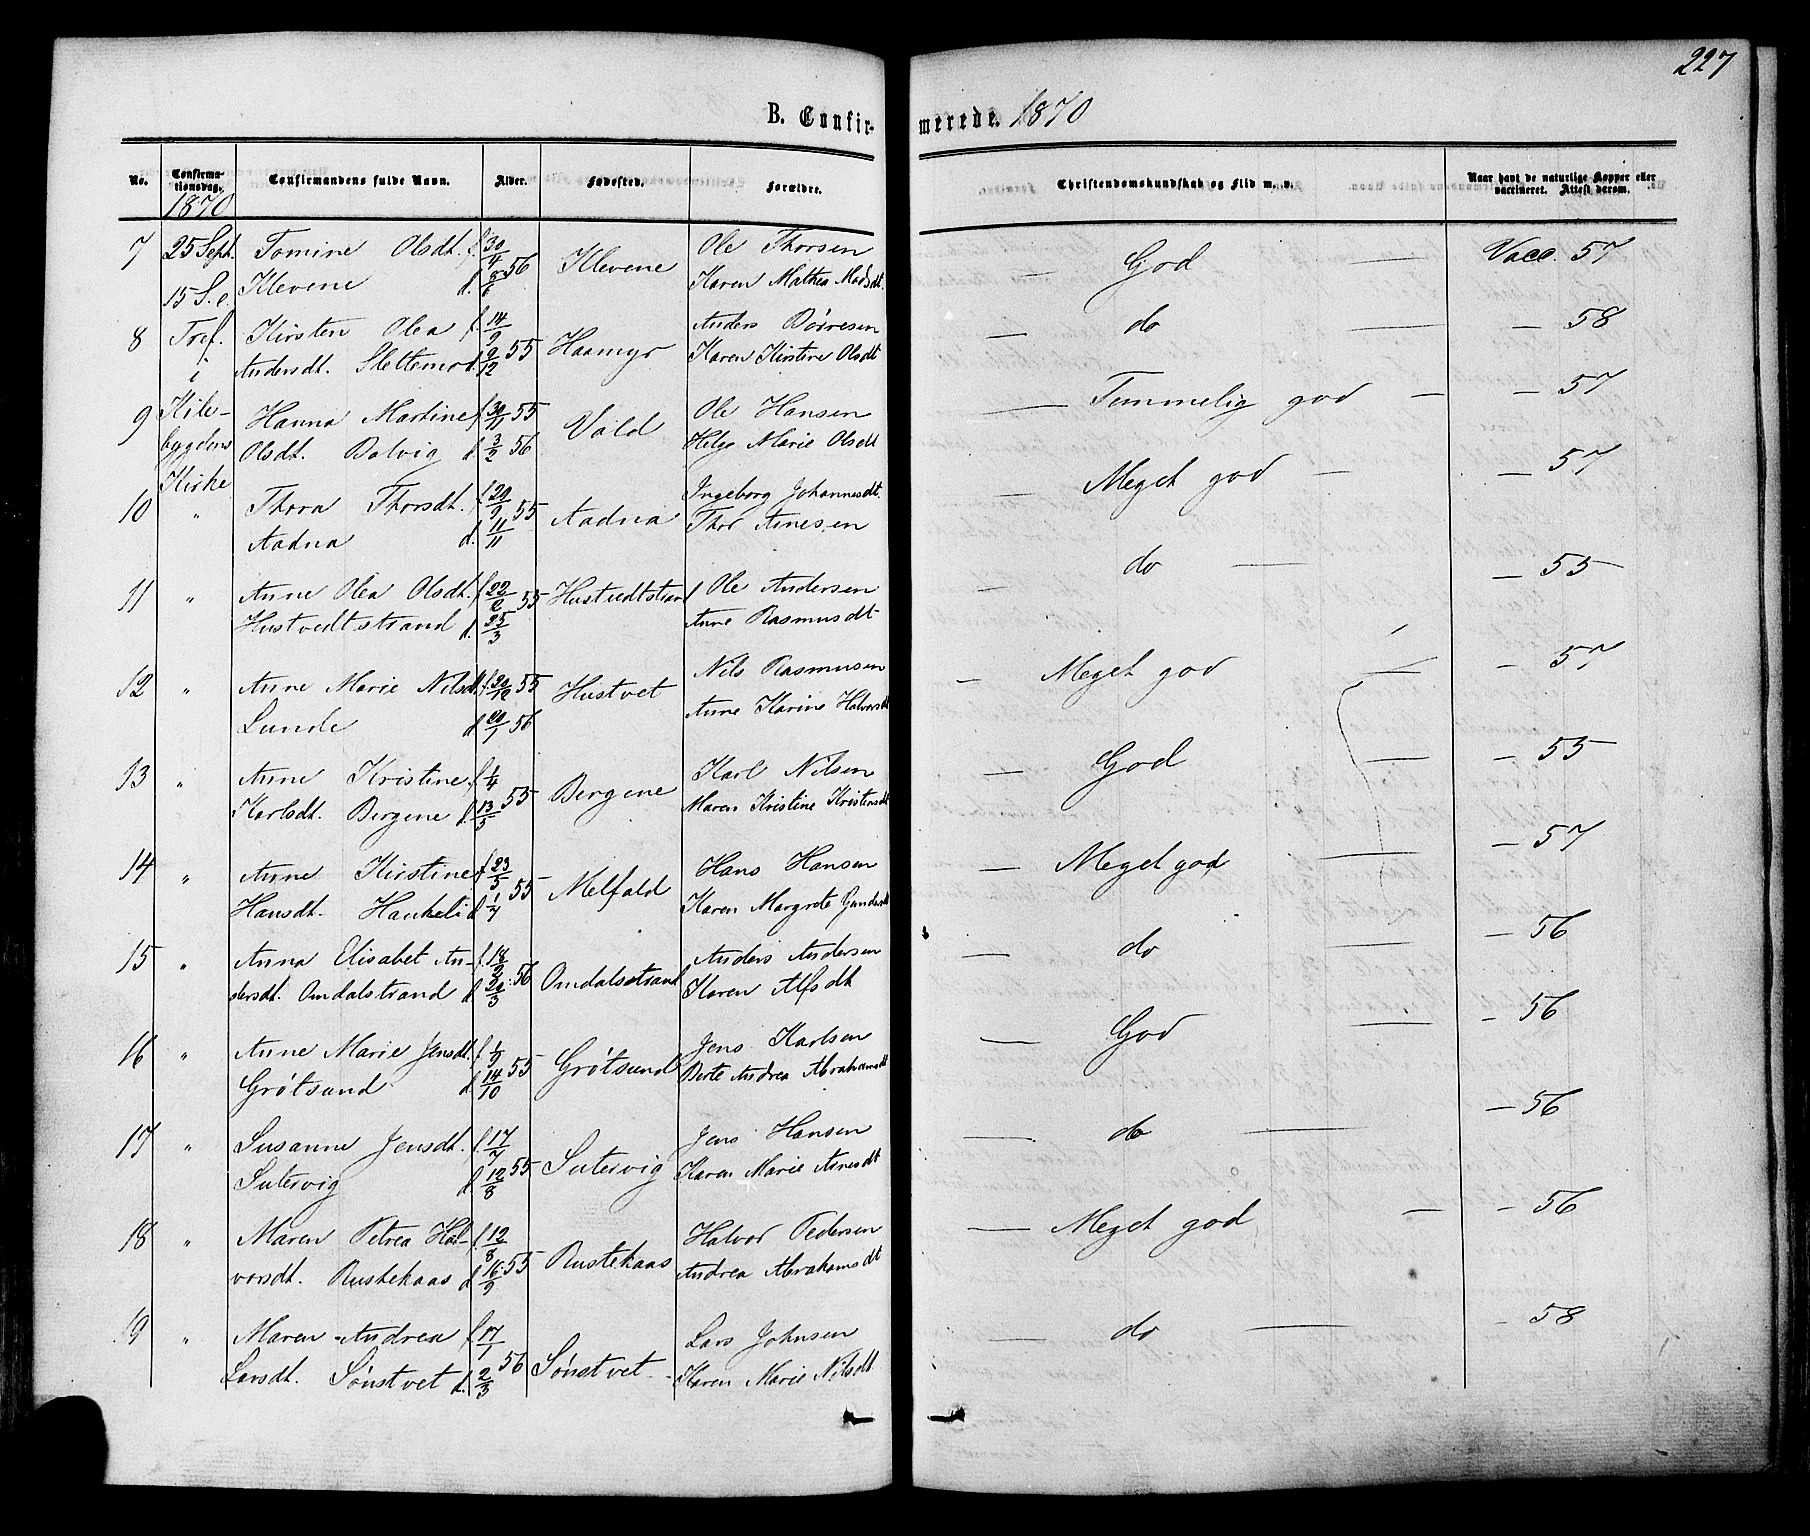 227
B. Confirmerede. 1870
No. Confirmationsdag. Confirmandens fulde Navn. Alder. Fødested. Forældre. Christendomskundskab og Flid m. v. Naar havt de naturlige Kopper eller vaccineret. Attest derom.
1870
7 25 Sept. Tomine Olsdt. f. 30/4 56 Klevene Ole Thorsen — God — Vacc. 57
15 S. e. Klevene d. Karen Mathea Madsdt.
8 Tref. Kirsten Olea f. 14/9 55 Haamyr Anders Børresen — do — — 58
i Andersdt. Slettemo d. 9/12 Karen Kirstine Olsdt
9 Kile- Hanna Martine f. 30/11 55 Vald Ole Hansen — Temmelig god — — 57
bygdens Olsdt. Bolvig d. 3/2 56 Helge Marie Olsdt
Kirke
10 " Thora Thorsdt. f. 29/9 55 Aadna Ingeborg Johannesdt. — Meget god — — 57
Aadna d. 11/11 Thor Arnesen
11 " Anne Olea Olsdt. f. 22/2 55 Hustvedtstrand Ole Andersen — do — — 55
Hustvedtstrand d. 25/3 Anne Rasmusdt
12 " Anne Marie Nilsdt f. 20/12 55 Hustvet Nils Rasmusen — Meget god — — 57
Lunde d. 20/1 56 Anne Karine Halvorsdt
13 " Anne Kristine f. 1/4 55 Bergene Karl Nilsen — God — — 55
Karlsdt. Bergene d. 13/5 Maren Kristine Kristensdt
14 " Anne Kirstine f. 23/5 55 Melfald Hans Hansen — Meget god — — 57
Hansdt. Haukeli d. 1/7 Karen Margrete Gundersdt
15 " Anna Elisabet An- f. 18/2 56 Omdalsstrand Anders Andersen — do — — 56
dersdt. Omdalstrand d. 20/3 Karen Alfsdt
16 " Anne Marie Jensdt. f. 1/9 55 Grøtsund Jens Karlsen — God — — 56
Grøtsund d. 14/10 Berte Andrea Abrahamsdt
17 " Susanne Jensdt. f. 17/7 55 Sutervig Jens Hansen — do — — 56
Sutervig d. 12/8 Karen Marie Arnesdt
18 " Maren Petrea Hal- f. 12/8 55 Rustekaas Halvor Pedersen — Meget god — — 56
vorsdt. Rustekaas d. 16/9 Andrea Abrahamsdt
19 " Maren Andrea f. 17/1 56 Sønstvet Lars Johnsen — do — — 58
Larsdt. Sønstvet d. 2/3 Karen Marie Nilsdt